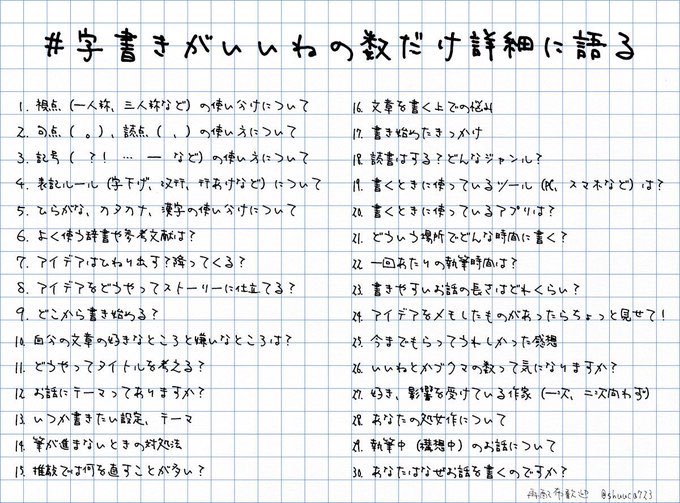 #字書きがいいねの数だけ詳細に語る
1. 視点（一人称、三人称など）の使い分けについて
2. 句点（。）、読点（、）の使い方について
3. 記号（？！…―など）の使い方について
4. 表記ルール（字下げ、改行、行あけなど）について
5. ひらがな、カタカナ、漢字の使い分けについて
6. よく使う辞書や参考文献は？
7. アイデアはひねり出す？降ってくる？
8. アイデアをどうやってストーリーに仕立てる？
9. どこから書き始める？
10. 自分の文章の好きなところと嫌いなところは？
11. どうやってタイトルを考える？
12. お話にテーマってありますか？
13. いつか書きたい設定、テーマ
14. 筆が進まないときの対処法
15. 推敲では何を直すことが多い？
16. 文章を書く上での悩み
17. 書き始めたきっかけ
18. 読書はする？どんなジャンル？
19. 書くときに使っているツール（PC、スマホなど）は？
20. 書くときに使っているアプリは？
21. どういう場所でどんな時間に書く？
22. 一回あたりの執筆時間は？
23. 書きやすいお話の長さはどれくらい？
24. アイデアをメモしたものがあったらちょっと見せて！
25. 今までもらってうれしかった感想
26. いいねとかブクマの数って気になりますか？
27. 好き、影響を受けている作家（一次、二次問わず）
28. あなたの処女作について
29. 執筆中（構想中）のお話について
30. あなたはなぜお話を書くのですか？
再配布歓迎 @shuuca723